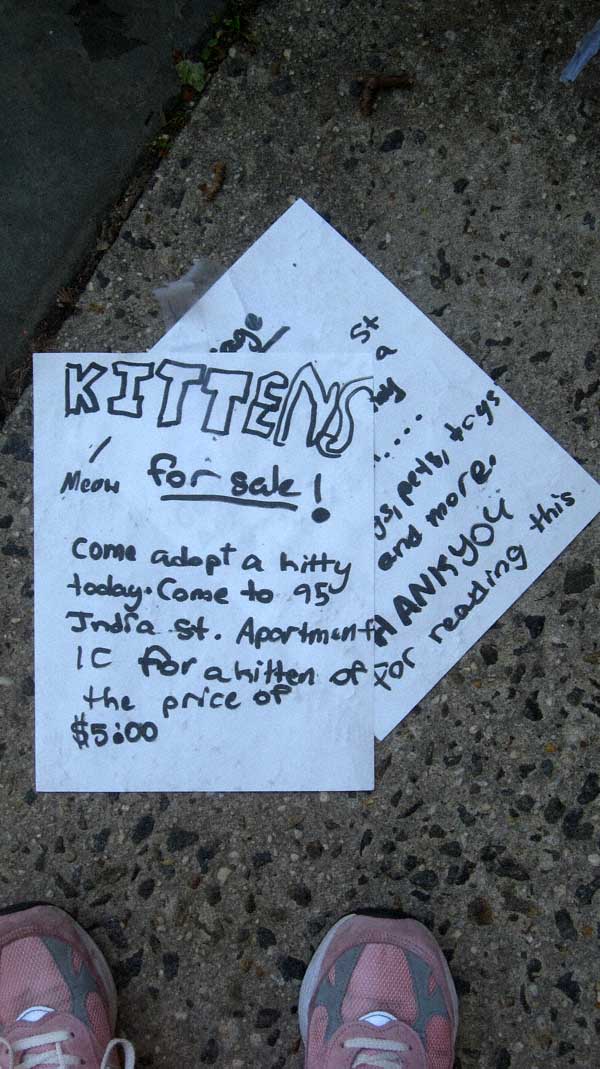 KITTENS
Meow for sale!
Come adopt a kitty
today. Come to 95
India st. Apartment
1C for a kitten of
the price of
$5:00
st
a
....
pets, toys
and more.
THANK YOU
For reading this